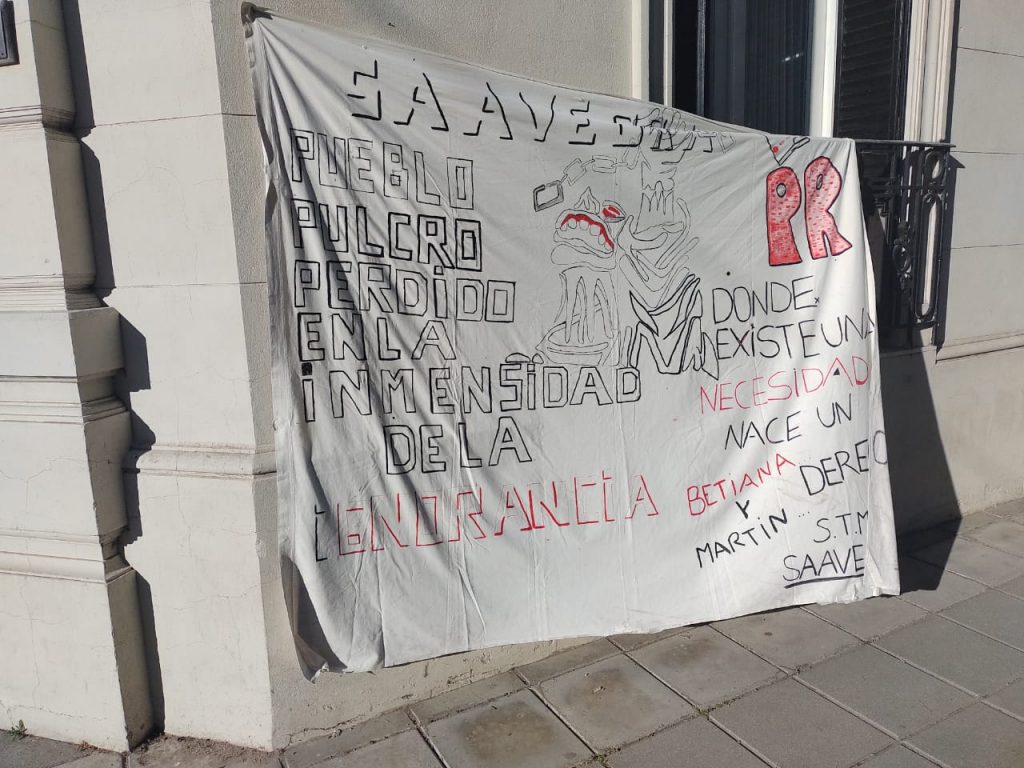 SAAVEDRA
PUEBLO
PULCRO
PERDIDO
EN LA
INMENSIDAD
DE LA
IGNORANCIA
PR
DONDE
EXISTE UNA
NECESIDAD
NACE UN
DEREC
BETIANA
Y
MARTIN...
S.T.M
SAAVE